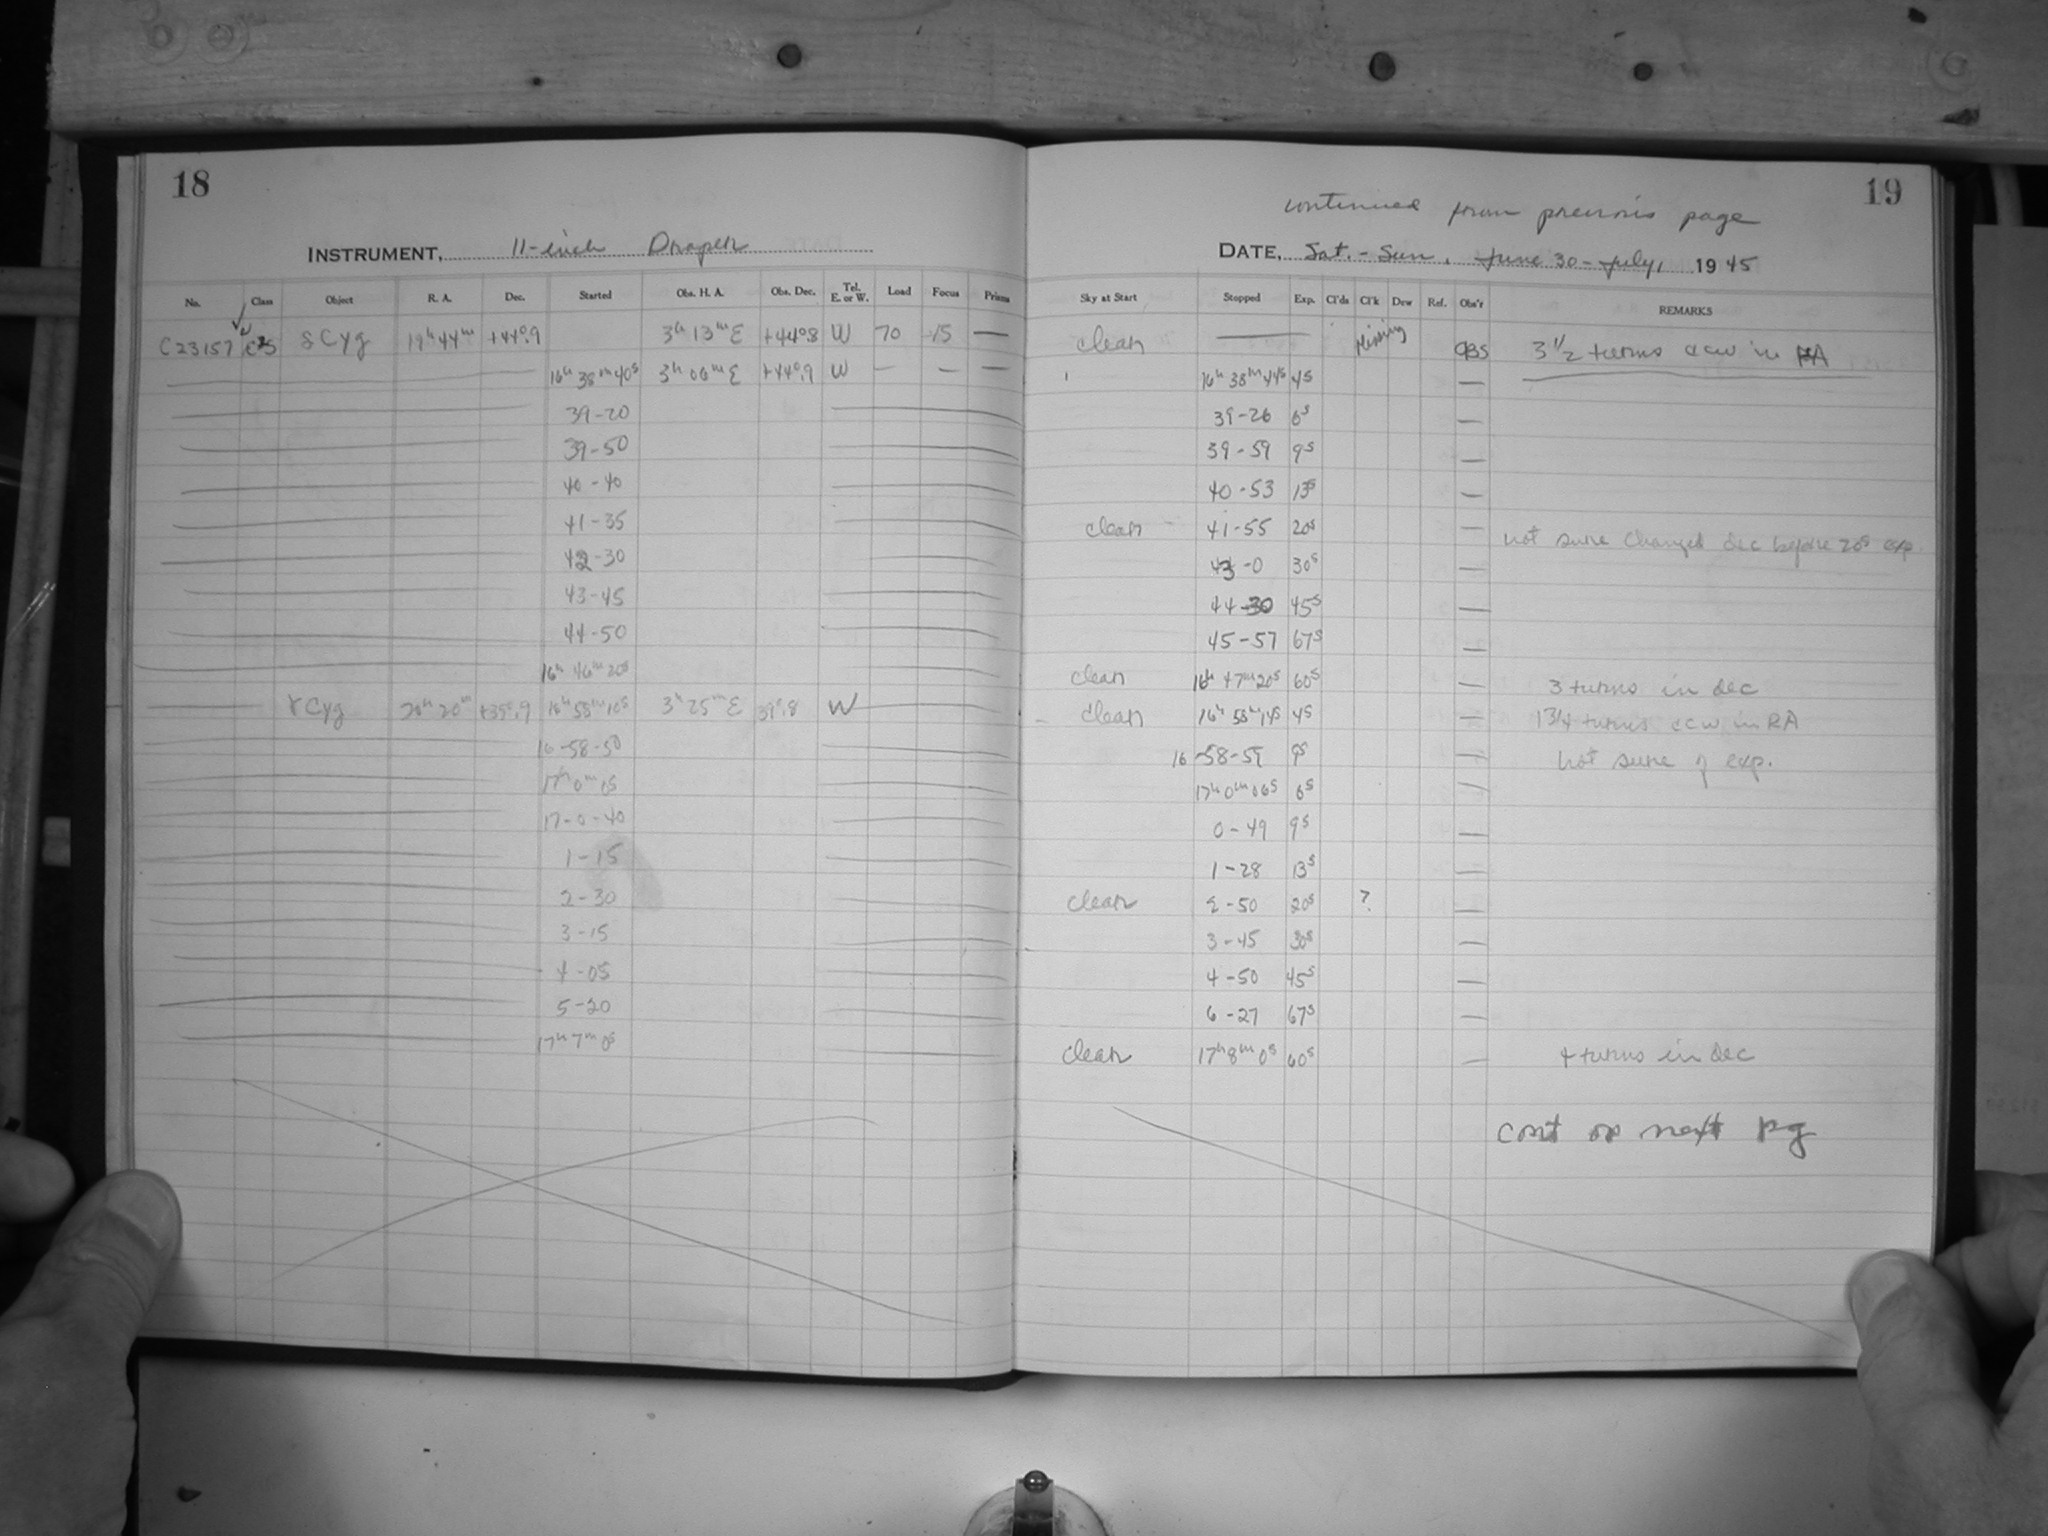 18
INSTRUMENT, 11-inch Draper
No. Class Object R. A. Dec. Started Obs. H. A. Obs. Dec. Tel. E. or W. Load Focus Prisms
C23157 δ Cyg 19h 44m +44°.9 3h 13m E +44°.8 W 70 15 —
16h 38m 40s 3h 06m E +44°.9 W — — —
39-20
39-50
40-40
41-35
42-30
43-45
44-50
16h 46m 20s
γ Cyg 20h 20m +39°.9 16h 58m 10s 3h 25m E 39°.8 W
16-58-50
17h 0m 0s
17-0-40
1-15
2-30
3-15
4-05
5-20
17h 7m 0s
19
continued from previous page
DATE, Sat. - Sun, June 30 - July 1 1945
Sky at Start Stopped Exp. Cl'ds Cl'k Dew Ref. Obs'r REMARKS
clear — missing 3 1/2 turns ccw in RA
16h 38m 44s 4s —
39-26 6s —
39-59 9s —
40-53 13s —
clear 41-55 20s — not sure changed dec before 20s exp.
43-0 30s —
44-30 45s —
45-57 67s —
clear 16h 47m 20s 60s — 3 turns in dec
clear 16h 58m 14s 4s — 1 3/4 turns ccw in RA
16-58-59 9s — not sure of exp.
17h 0m 06s 6s —
0-49 9s —
1-28 13s —
clear 2-50 20s ? —
3-45 30s —
4-50 45s —
6-27 67s —
clear 17h 8m 0s 60s — 4 turns in dec
cont on next pg